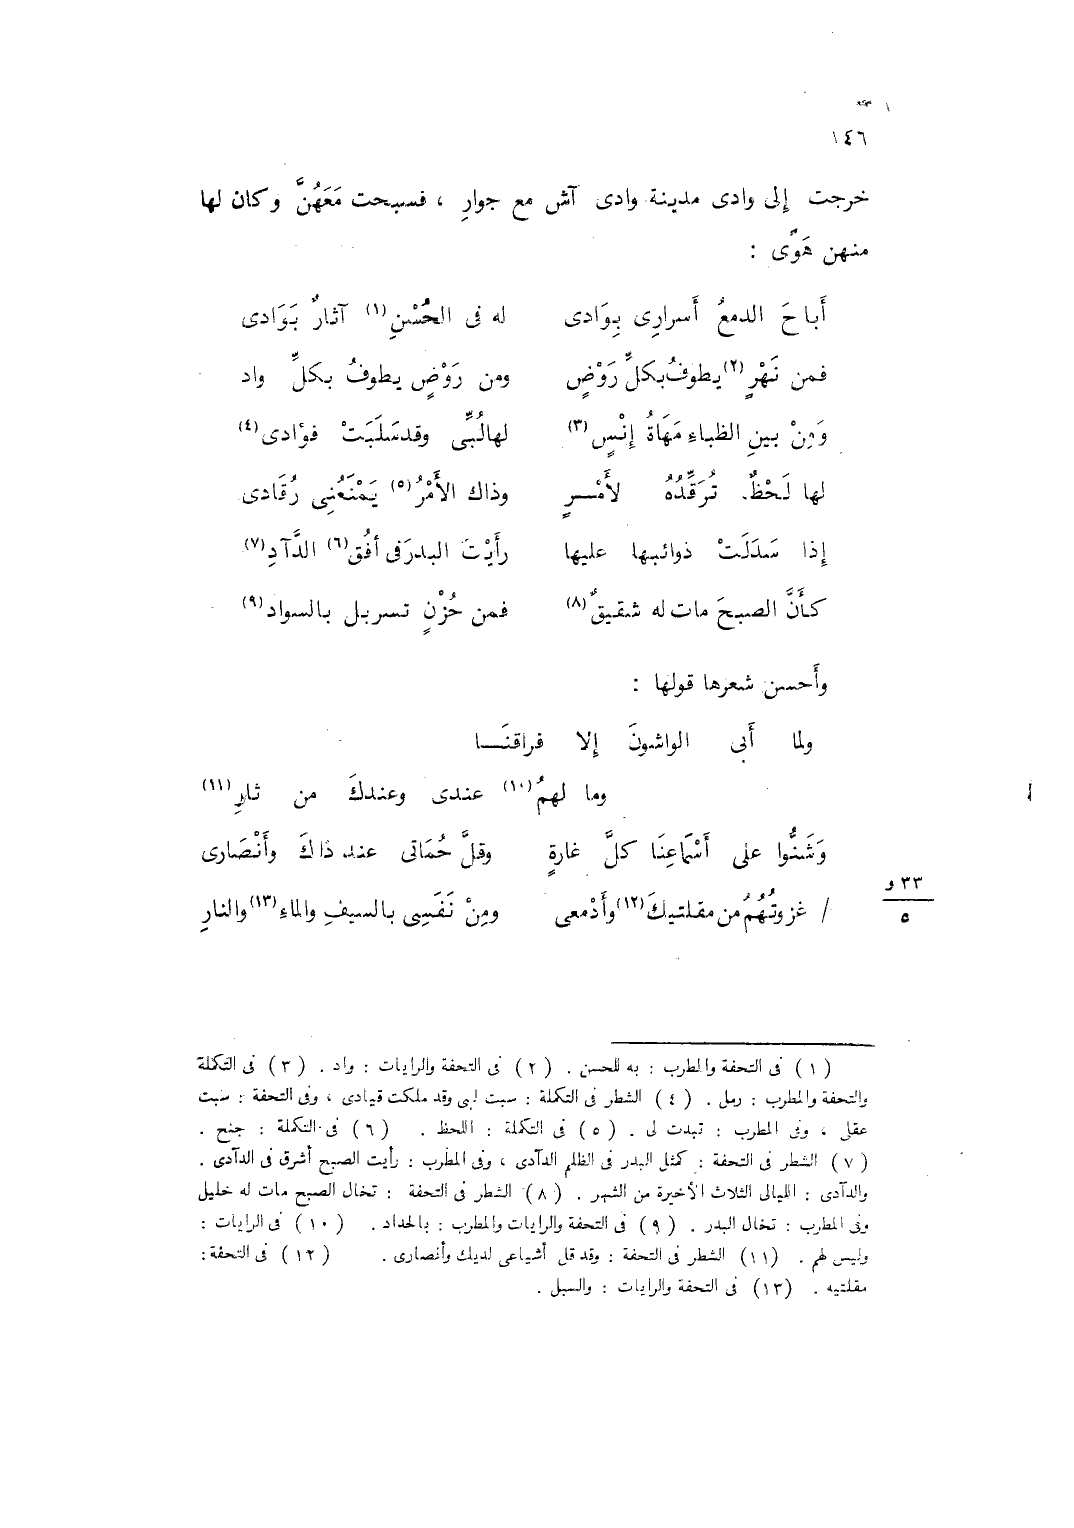 ١٤٦
خرجت إلى وادى مدينة وادى آش مع جوارٍ ، فسبحت مَعَهُنَّ وكان لها
منهن هَوًى :
أَباحَ الدمعُ أَسرارِى بِوَادى له فى الحُسْنِ(١) آثارٌ بَوَادى
فمن نَهْرٍ(٢) يطوفُ بكلِّ رَوْضٍ ومن رَوْضٍ يطوفُ بكلِّ واد
وَمِنْ بينِ الظباء مَهَاةُ إنْسٍ(٣) لها لُبِّى وقد سَلَبَتْ فؤادى(٤)
لها لَحْظٌ تُرَقِّدُهُ لأَمْــرٍ وذاك الأَمْرُ(٥) يَمْنَعُنِى رُقَادى
إذا سَدَلَتْ ذوائبها عليها رأَيْتَ البدرَ فى أفُق(٦) الدَّآدِ(٧)
كأَنَّ الصبحَ مات له شقيقٌ(٨) فمن حُزْنٍ تسربل بالسواد(٩)
وأَحسن شعرها قولها :
ولما أَبى الواشونَ إلا فراقنَــا
وما لهمُ(١٠) عندى وعندكَ من ثارِ(١١)
وَشَنُّوا على أَسْمَاعِنَا كلَّ غارةٍ وقلَّ حُمَاتى عند ذاكَ وأَنْصَارى
/ غزوتُهُمُ من مقلتيكَ(١٢) وأَدْمعى ومِنْ نَفَسِى بالسيفِ والماء(١٣) والنارِ
٣٣ و
٥
(١) فى التحفة والمطرب : به للحسن . (٢) فى التحفة والرايات : واد . (٣) فى التكملة
والتحفة والمطرب : رمل . (٤) الشطر فى التكملة : سبت لبى وقد ملكت قيادى ، وفى التحفة : سبت
عقلى ، وفى المطرب : تبدت لى . (٥) فى التكملة : اللحظ . (٦) فى التكملة : جنح .
(٧) الشطر فى التحفة : كمثل البدر فى الظلم الدآدى ، وفى المطرب : رأيت الصبح أشرق فى الدآدى .
والدآدى : الليالى الثلاث الأخيرة من الشهر . (٨) الشطر فى التحفة : تخال الصبح مات له خليل
وفى المطرب : تخال البدر . (٩) فى التحفة والرايات والمطرب : بالحداد . (١٠) فى الرايات :
وليس لهم . (١١) الشطر فى التحفة : وقد قل أشياعى لديك وأنصارى . (١٢) فى التحفة :
مقلتيه . (١٣) فى التحفة والرايات : والسبل .